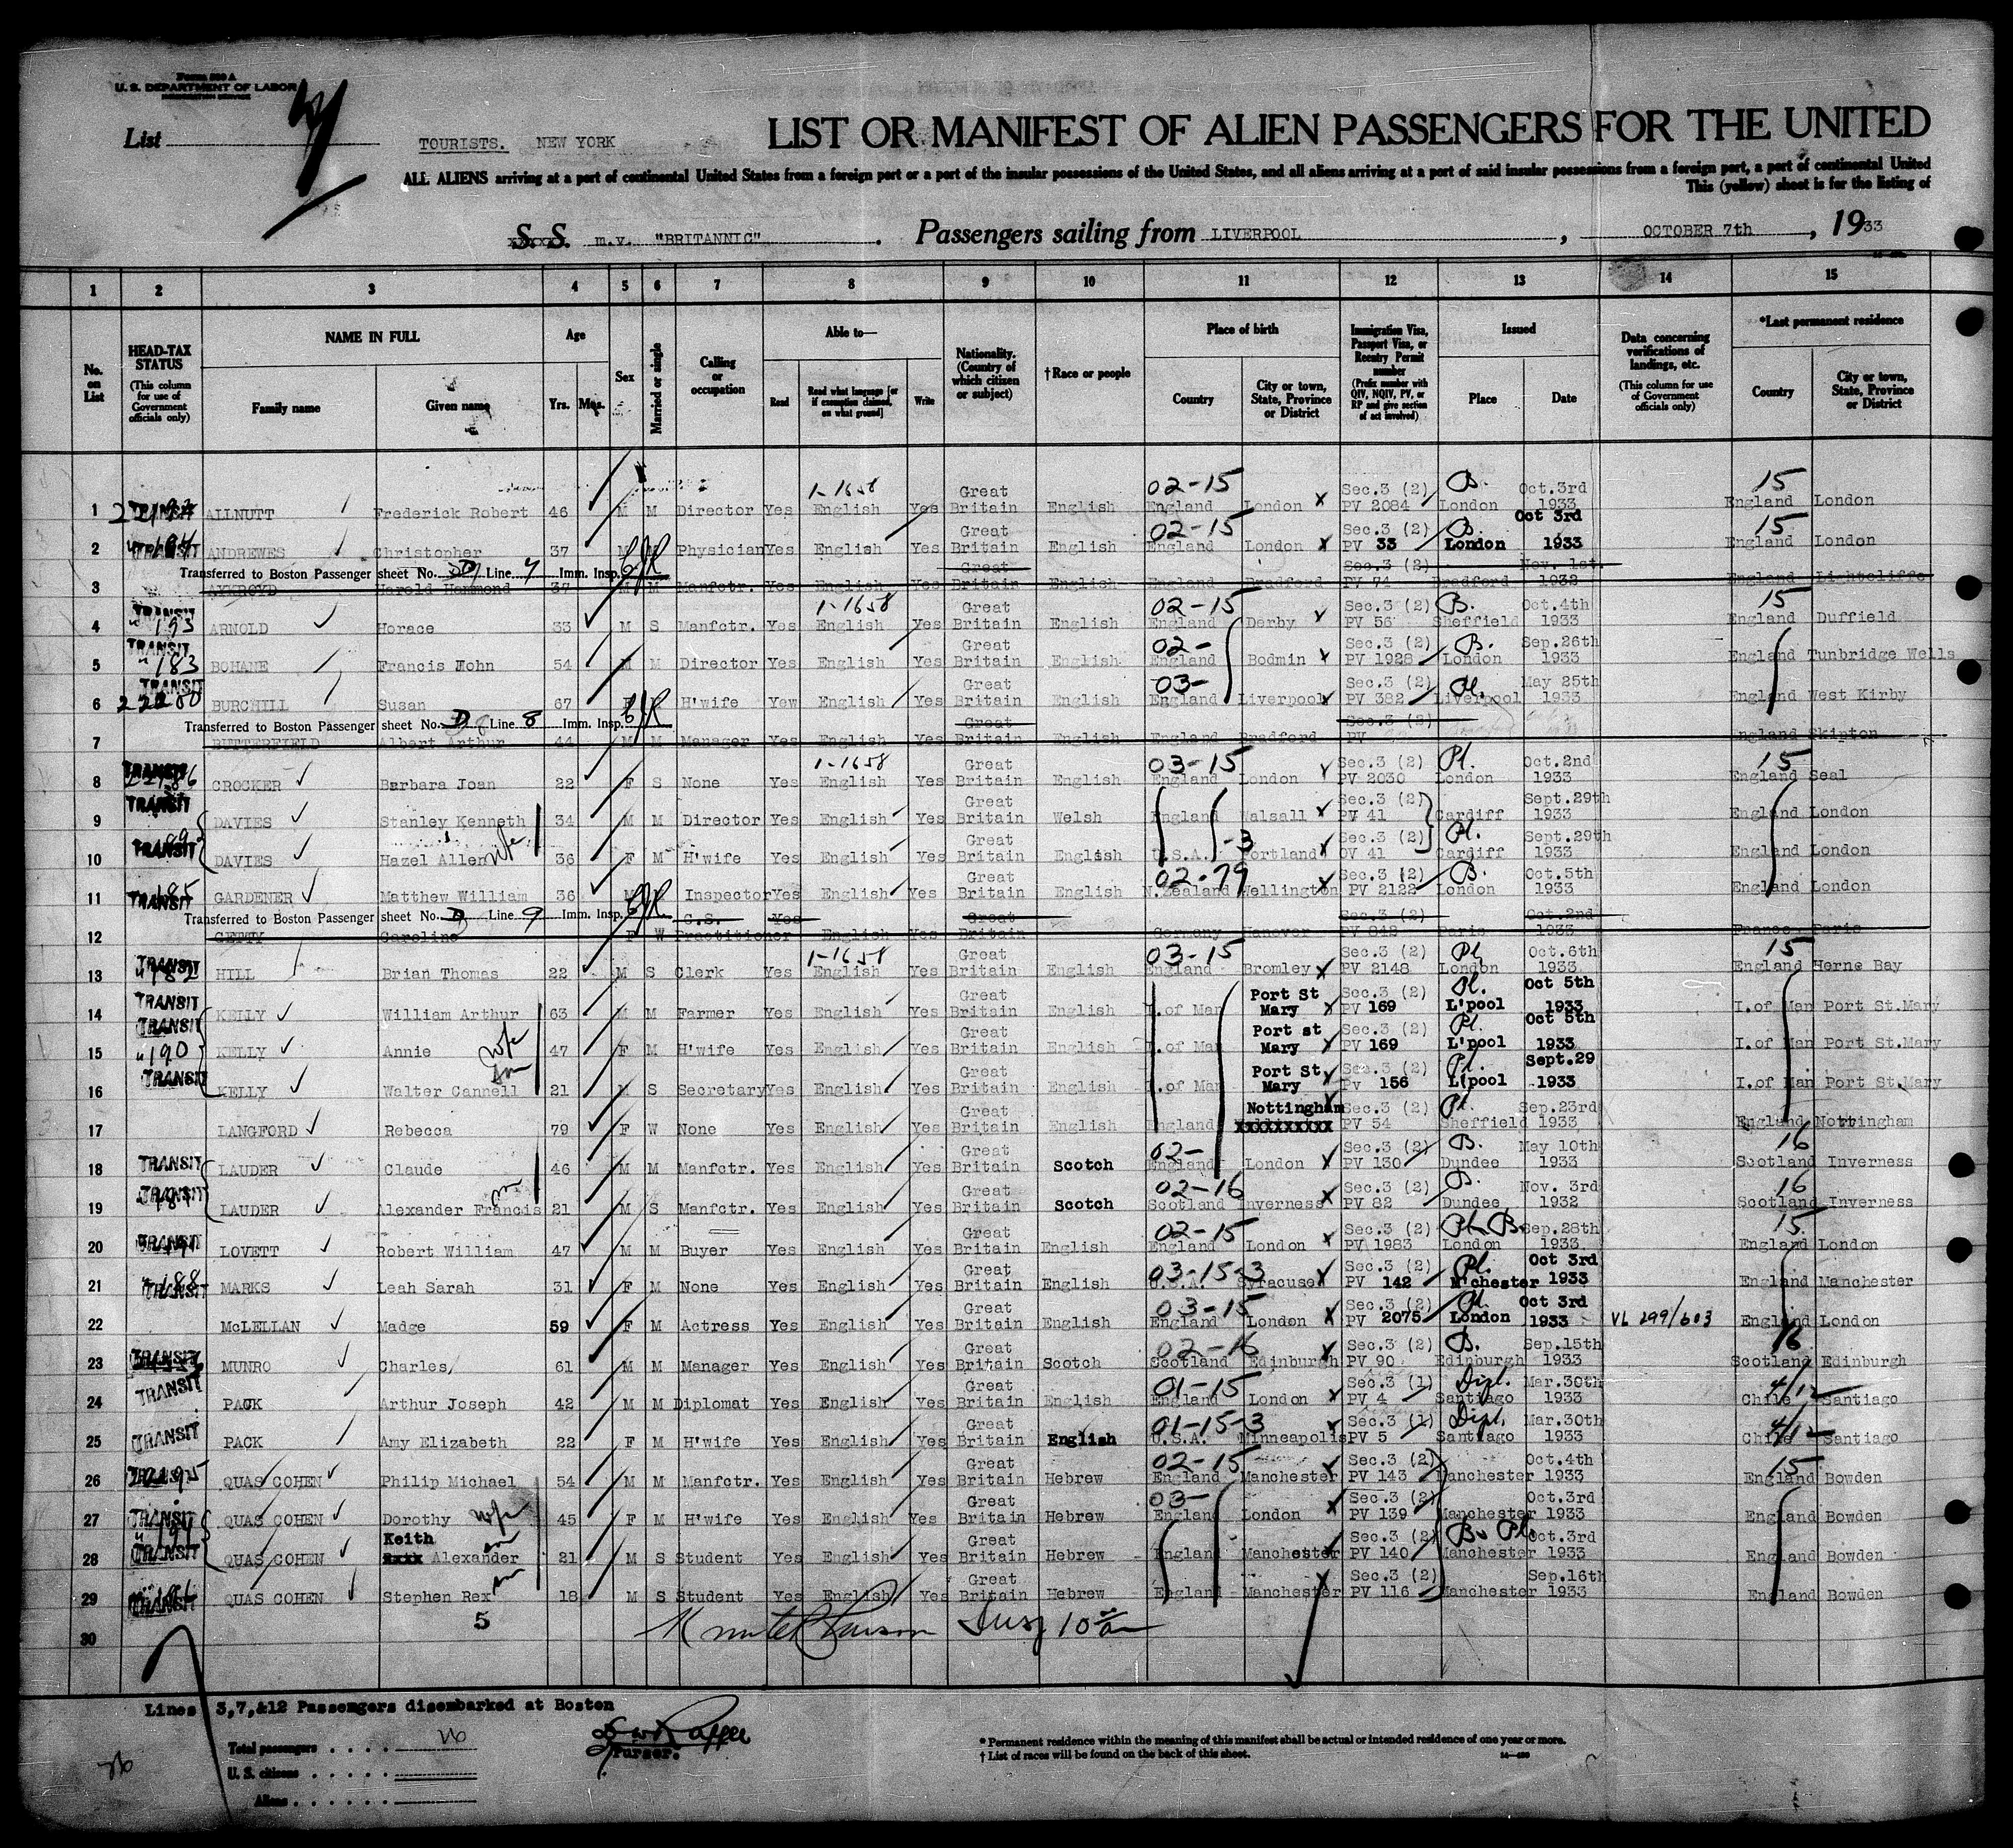 Form 500 A
U. S. DEPARTMENT OF LABOR
IMMIGRATION SERVICE
List
TOURISTS. NEW YORK
LIST OR MANIFEST OF ALIEN PASSENGERS FOR THE UNITED
ALL ALIENS arriving at a port of continental United States from a foreign port or a port of the insular possessions of the United States, and all aliens arriving at a port of said insular possessions from a foreign port, a port of continental United
This (yellow) sheet is for the listing of
S. S. m.v. "BRITANNIC" Passengers sailing from LIVERPOOL, OCTOBER 7th, 1933
1 2 3 4 5 6 7 8 9 10 11 12 13 14 15
No. on List
HEAD-TAX STATUS (This column for use of Government officials only)
NAME IN FULL Family name Given name
Age Yrs. Mos.
Sex
Married or single
Calling or occupation
Able to— Read Read what language [or if exemption claimed, on what ground] Write
Nationality. (Country of which citizen or subject)
†Race or people
Place of birth Country City or town, State, Province or District
Immigration Visa, Passport Visa, or Reentry Permit number (Prefix number with QIV, NQIV, PV, or RP and give section of act involved)
Issued Place Date
Data concerning verifications of landings, etc. (This column for use of Government officials only)
*Last permanent residence Country City or town, State, Province or District
1 TRANSIT ALLNUTT Frederick Robert 46 M M Director Yes 1-1658 English Yes Great Britain English 02-15 England London Sec.3 (2) PV 2084 B. London Oct.3rd 1933 15 England London
2 TRANSIT ANDREWES Christopher 37 M M Physician Yes English Yes Great Britain English 02-15 England London Sec.3 (2) PV 33 B. London Oct 3rd 1933 15 England London
Transferred to Boston Passenger sheet No. Line 7 Imm. Insp.
3 AYKROYD Harold Hammond 37 M M Manfctr. Yes English Yes Great Britain English England Bradford Sec.3 (2) PV 74 Bradford Nov. 1st. 1932 England Lightcliffe
4 TRANSIT 193 ARNOLD Horace 33 M S Manfctr. Yes 1-1658 English Yes Great Britain English 02-15 England Derby Sec.3 (2) PV 56 B. Sheffield Oct.4th 1933 15 England Duffield
5 TRANSIT 183 BOHANE Francis John 54 M M Director Yes English Yes Great Britain English 02- England Bodmin Sec.3 (2) PV 1928 B. London Sep.26th 1933 England Tunbridge Wells
6 TRANSIT BURCHILL Susan 67 F H'wife Yew English Yes Great Britain English 03- England Liverpool Sec.3 (2) PV 382 Pl. Liverpool May 25th 1933 England West Kirby
Transferred to Boston Passenger sheet No. D Line 8 Imm. Insp.
7 BUTTERFIELD Albert Arthur 44 M M Manager Yes English Yes Great Britain English England Bradford Sec.3 (2) PV England Skipton
8 TRANSIT CROCKER Barbara Joan 22 F S None Yes 1-1658 English Yes Great Britain English 03-15 England London Sec.3 (2) PV 2030 Pl. London Oct.2nd 1933 15 England Seal
9 TRANSIT DAVIES Stanley Kenneth 34 M M Director Yes English Yes Great Britain Welsh England Walsall Sec.3 (2) PV 41 Cardiff Sept.29th 1933 England London
10 TRANSIT DAVIES Hazel Allen wife 36 F M H'wife Yes English Yes Great Britain English U.S.A. -3 Portland Sec.3 (2) OV 41 Pl. Cardiff Sept.29th 1933 England London
11 TRANSIT 185 GARDENER Matthew William 36 M Inspector Yes English Yes Great Britain English 02-79 N.Zealand Wellington Sec.3 (2) PV 2122 B. London Oct.5th 1933 England London
Transferred to Boston Passenger sheet No. D Line 9 Imm. Insp.
12 GETTY Caroline F W C.S. Practitioner Yes English Yes Great Britain Germany Hanover Sec.3 (2) PV 842 Paris Oct.2nd 1933 France Paris
13 TRANSIT 182 HILL Brian Thomas 22 M S Clerk Yes 1-1658 English Yes Great Britain English 03-15 England Bromley Sec.3 (2) PV 2148 Pl. London Oct.6th 1933 15 England Herne Bay
14 TRANSIT KELLY William Arthur 63 M M Farmer Yes English Yes Great Britain English I.of Man Port St Mary Sec.3 (2) PV 169 Pl. L'pool Oct 5th 1933 I.of Man Port St.Mary
15 TRANSIT 190 KELLY Annie wife 47 F M H'wife Yes English Yes Great Britain English I.of Man Port st Mary Sec.3 (2) PV 169 Pl. L'pool Oct 5th 1933 I.of Man Port St.Mary
16 TRANSIT KELLY Walter Cannell son 21 M S Secretary Yes English Yes Great Britain English I.of Man Port St Mary Sec.3 (2) Pv 156 Pl. L'pool Sept.29 1933 I.of Man Port St.Mary
17 LANGFORD Rebecca 79 F W None Yes English Yes Great Britain English England Nottingham xxxxxxxxxx Sec.3 (2) PV 54 Pl. Sheffield Sep.23rd 1933 England Nottingham
18 TRANSIT LAUDER Claude 46 M M Manfctr. Yes English Yes Great Britain Scotch 02- England London Sec.3 (2) PV 130 B. Dundee May 10th 1933 16 Scotland Inverness
19 TRANSIT LAUDER Alexander Francis son 21 M S Manfctr. Yes English Yes Great Britain Scotch 02-16 Scotland Inverness Sec.3 (2) PV 82 B. Dundee Nov. 3rd 1932 16 Scotland Inverness
20 TRANSIT LOVETT Robert William 47 M M Buyer Yes English Yes Great Britain English 02-15 England London Sec.3 (2) PV 1983 Pl. B. London Sep.28th 1933 15 England London
21 188 TRANSIT MARKS Leah Sarah 31 F M None Yes English Yes Great Britain English 03-15-3 U.S.A. Syracuse Sec.3 (2) PV 142 Pl. M'chester Oct 3rd 1933 England Manchester
22 McLELLAN Madge 59 F M Actress Yes English Yes Great Britain English 03-15 England London Sec.3 (2) PV 2075 Pl. London Oct 3rd 1933 VL 299/603 England London
23 TRANSIT MUNRO Charles 61 M M Manager Yes English Yes Great Britain Scotch 02-16 Scotland Edinburgh Sec.3 (2) PV 90 B. Edinburgh Sep.15th 1933 16 Scotland Edinburgh
24 TRANSIT PACK Arthur Joseph 42 M M Diplomat Yes English Yes Great Britain English 01-15 England London Sec.3 (1) PV 4 Dipl. Santiago Mar.30th 1933 Chile Santiago
25 TRANSIT PACK Amy Elizabeth 22 F M H'wife Yes English Yes Great Britain English 01-15-3 U.S.A. Minneapolis Sec.3 (1) PV 5 Dipl. Santiago Mar.30th 1933 Chile Santiago
26 TRANSIT QUAS COHEN Philip Michael 54 M M Manfctr. Yes English Yes Great Britain Hebrew 02-15 England Manchester Sec.3 (2) PV 143 Manchester Oct.4th 1933 15 England Bowden
27 TRANSIT QUAS COHEN Dorothy wife 45 F M H'wife Yes English Yes Great Britain Hebrew 03- England London Sec.3 (2) PV 139 Manchester Oct.3rd 1933 England Bowden
28 TRANSIT QUAS COHEN Keith Alexander son 21 M S Student Yes English Yes Great Britain Hebrew England Manchester Sec.3 (2) PV 140 B. Pl. Manchester Oct.3rd 1933 England Bowden
29 TRANSIT QUAS COHEN Stephen Rex son 18 M S Student Yes English Yes Great Britain Hebrew England Manchester Sec.3 (2) PV 116 Manchester Sep.16th 1933 England Bowden
5
30
Lines 3,7,&12 Passengers disembarked at Boston
Total passengers
U. S. citizens
Aliens
Purser.
* Permanent residence within the meaning of this manifest shall be actual or intended residence of one year or more.
† List of races will be found on the back of this sheet.